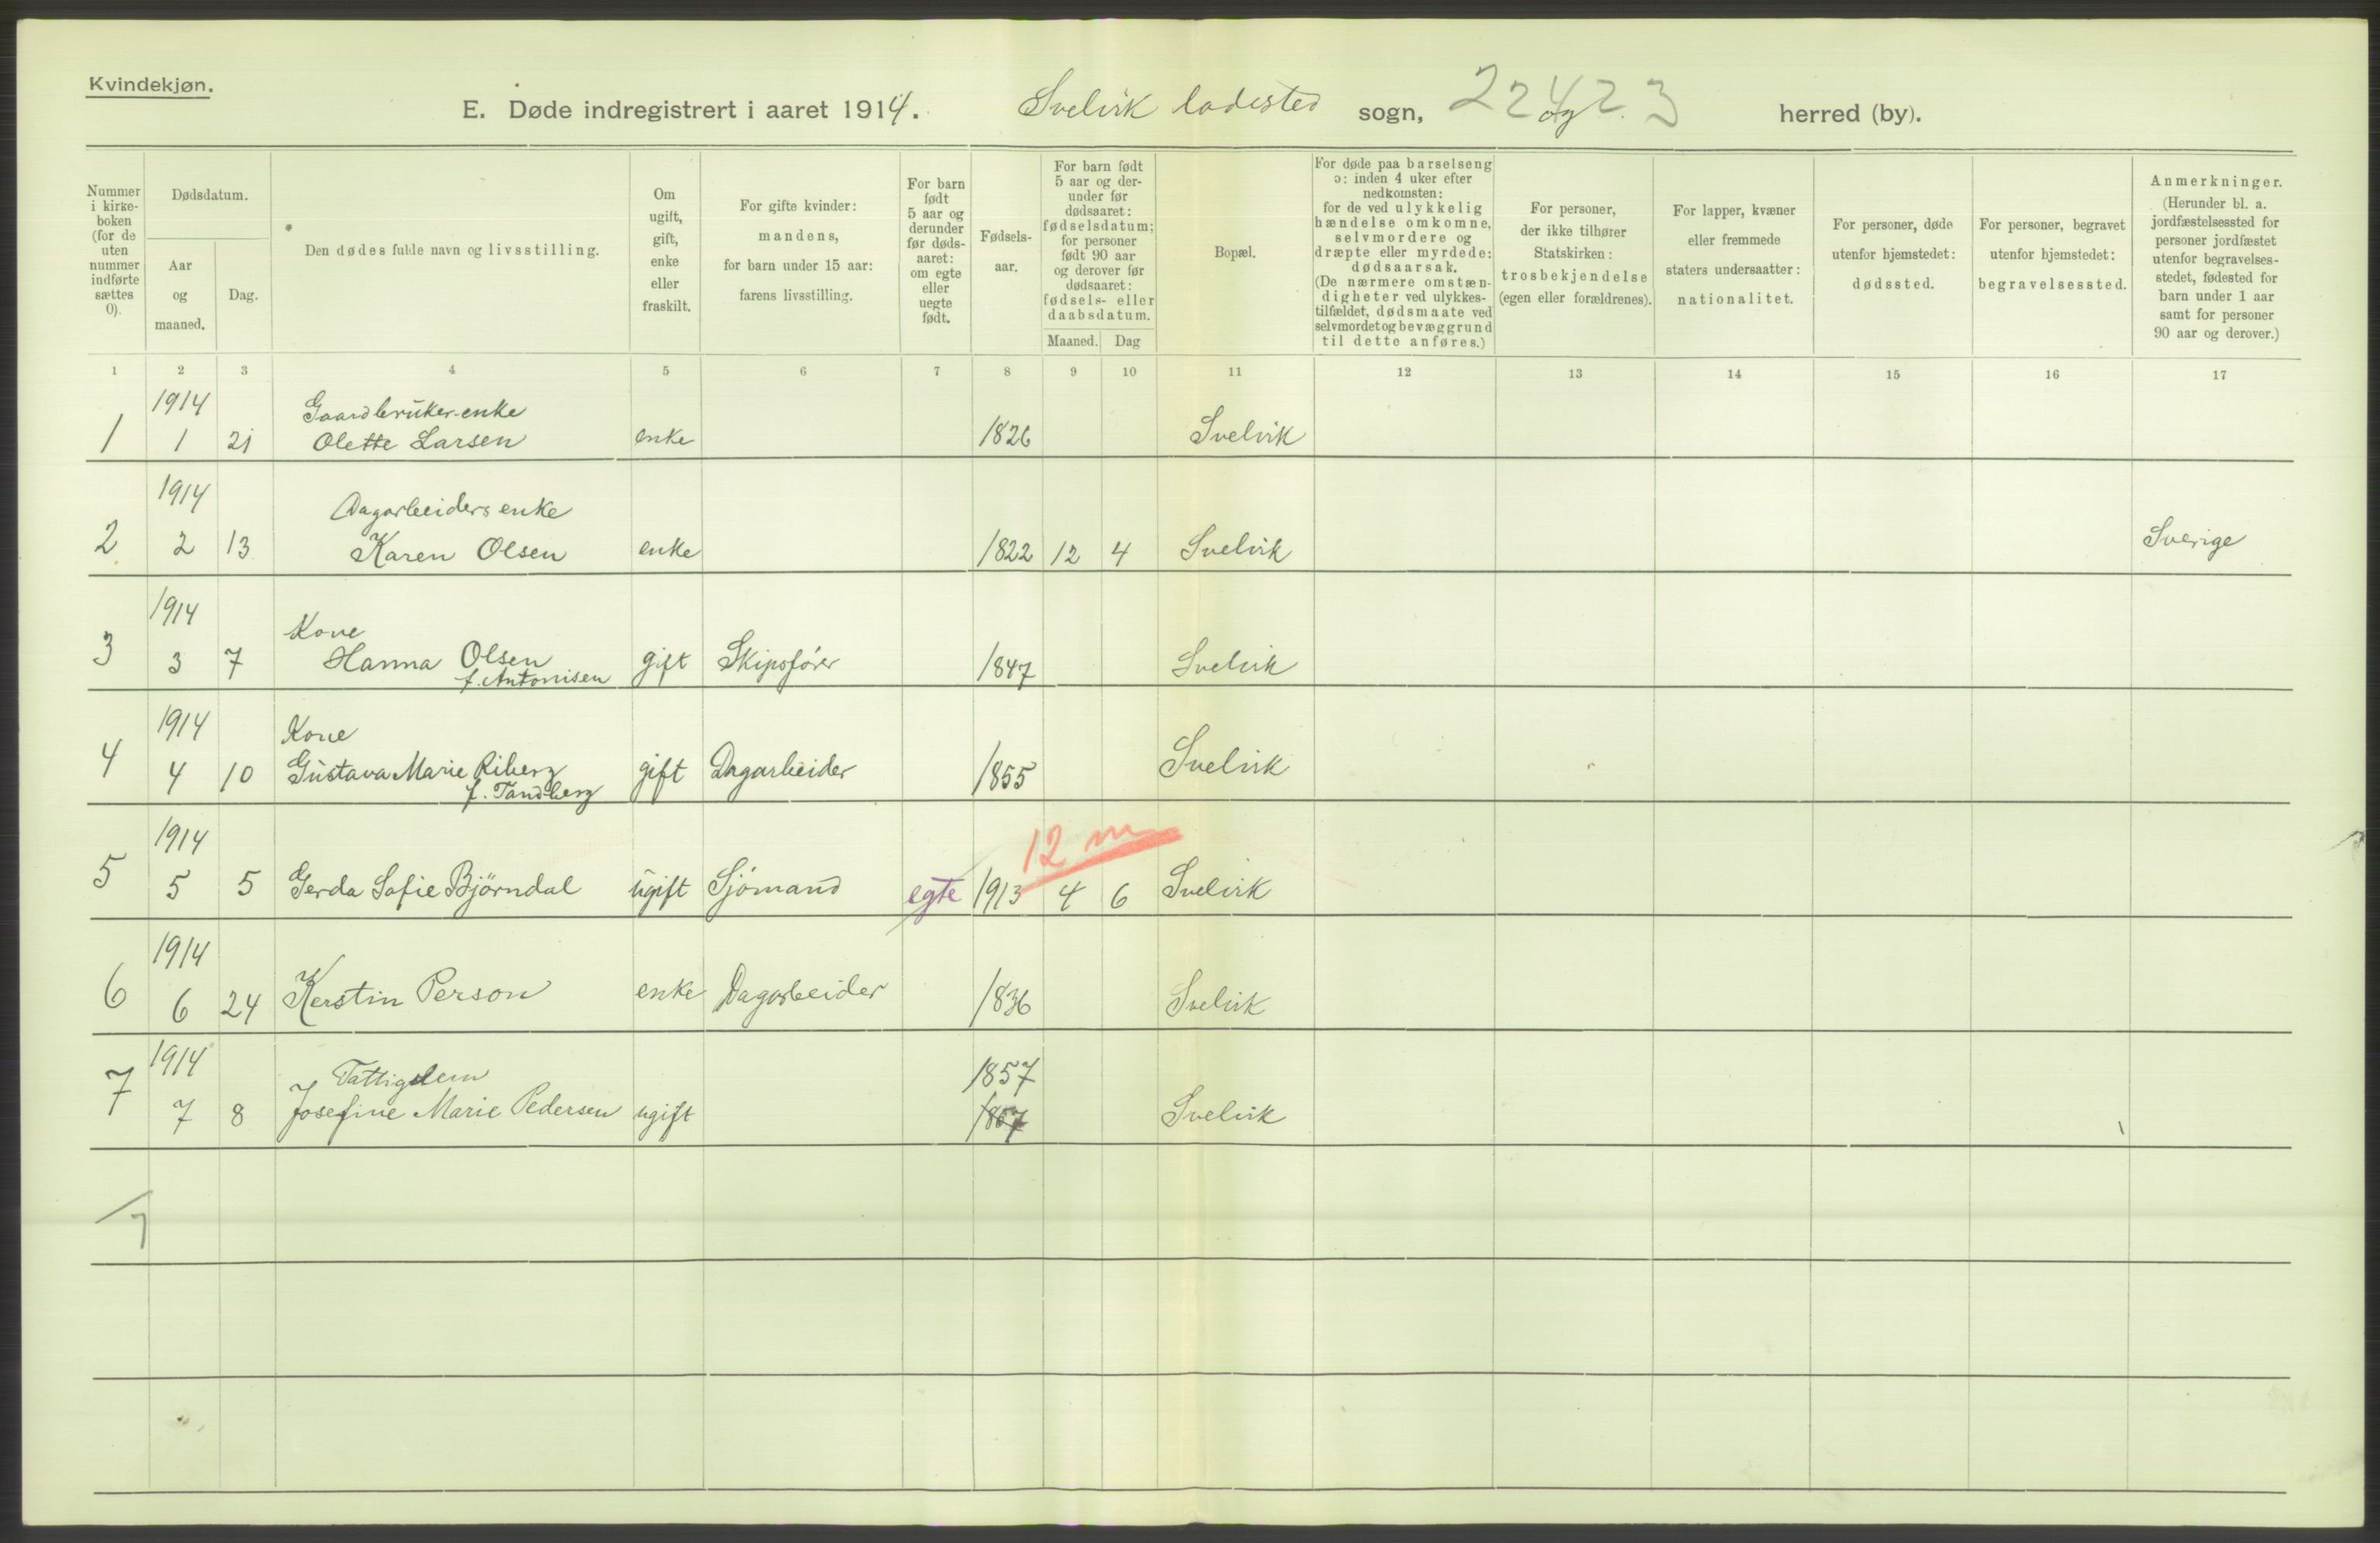 Kvindekjøn.
E. Døde indregistrert i aaret 1914. Svelvik ladested sogn, og herred (by).
Nummer i kirke-boken (for de uten nummer indførte sættes 0).
Dødsdatum.
Aar og maaned.
Dag.
Den dødes fulde navn og livsstilling.
Om ugift, gift, enke eller fraskilt.
For gifte kvinder: mandens, for barn under 15 aar: farens livsstilling.
For barn født 5 aar og derunder før døds-aaret: om egte eller uegte født.
Fødsels-aar.
For barn født 5 aar og der-under før dødsaaret: fødselsdatum; for personer født 90 aar og derover før dødsaaret: fødsels- eller daabsdatum.
Maaned. Dag
Bopæl.
For døde paa barselseng ɔ: inden 4 uker efter nedkomsten: for de ved ulykkelig hændelse omkomne, selvmordere og dræpte eller myrdede: dødsaarsak. (De nærmere omstæn-digheter ved ulykkes-tilfældet, dødsmaate ved selvmordet og bevæggrund til dette anføres.)
For personer, der ikke tilhører Statskirken: trosbekjendelse (egen eller forældrenes).
For lapper, kvæner eller fremmede staters undersaatter: nationalitet.
For personer, døde utenfor hjemstedet: dødssted.
For personer, begravet utenfor hjemstedet: begravelsessted.
Anmerkninger. (Herunder bl. a. jordfæstelsessted for personer jordfæstet utenfor begravelses-stedet, fødested for barn under 1 aar samt for personer 90 aar og derover.)
1 2 3 4 5 6 7 8 9 10 11 12 13 14 15 16 17
1914 Gaardbruker-enke
1 1 21 Olette Larsen enke 1826 Svelvik
1914 Dagarbeiders enke
2 2 13 Karen Olsen enke 1822 12 4 Svelvik Sverige
1914 Kone
3 3 7 Hanna Olsen gift Skipsfører 1847 Svelvik
f. Antonisen
1914 Kone
4 4 10 Gustava Marie Riberg gift Dagarbeider 1855 Svelvik
f. Tandberg
1914 12 m
5 5 5 Gerda Sofie Björndal ugift Sjömand egte 1913 4 6 Svelvik
1914
6 6 24 Kerstin Person enke Dagarbeider 1836 Svelvik
1914 Fattiglem 1857
7 7 8 Josefine Marie Pedersen ugift 1857 Svelvik
7